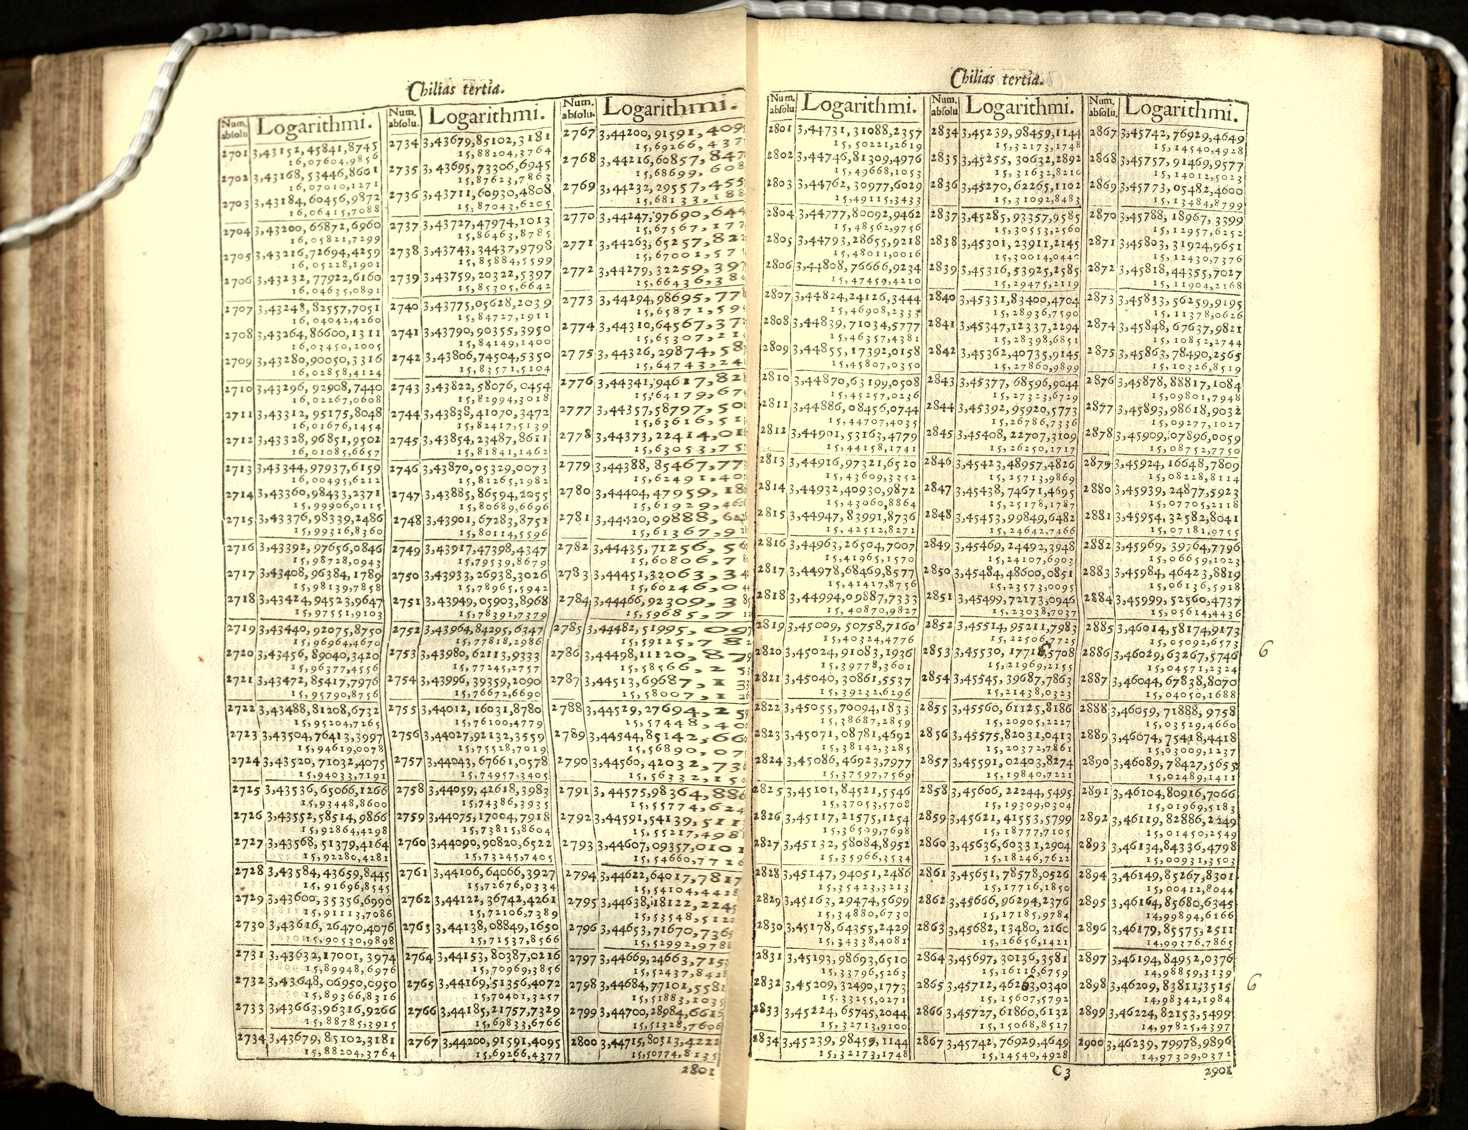 Chilias tertia.
Num. absolu
Logarithmi.
2701 3,43152,45841,8745
16,07604,9856
2702 3,43168,53446,8601
16,07010,1271
2703 3,43184,60456,9872
16,06415,7088
2704 3,43200,66871,6960
16,05821,7299
2705 3,43216,72694,4259
16,05228,1901
2706 3,43232,77922,6160
16,04635,0891
2707 3,43248,82557,7051
16,04042,4260
2708 3,43264,86600,1311
16,03450,2005
2709 3,43280,90050,3316
16,02858,4124
2710 3,43296,92908,7440
16,02267,0608
2711 3,43312,95175,8048
16,01676,1454
2712 3,43328,96851,9502
16,01085,6657
2713 3,43344,97937,6159
16,00495,6212
2714 3,43360,98433,2371
15,99906,0115
2715 3,43376,98339,2486
15,99316,8360
2716 3,43392,97656,0846
15,98728,0943
2717 3,43408,96384,1789
15,98139,7858
2718 3,43424,94523,9647
15,97551,9103
2719 3,43440,92075,8750
15,96964,4670
2720 3,43456,89040,3420
15,96377,4556
2721 3,43472,85417,7976
15,95790,8756
2722 3,43488,81208,6732
15,95204,7265
2723 3,43504,76413,3997
15,94619,0078
2724 3,43520,71032,4075
15,94033,7191
2725 3,43536,65066,1266
15,93448,8600
2726 3,43552,58514,9866
15,92864,4298
2727 3,43568,51379,4164
15,92280,4281
2728 3,43584,43659,8445
15,91696,8545
2729 3,43600,35356,6990
15,91113,7086
2730 3,43616,26470,4076
15,90530,9898
2731 3,43632,17001,3974
15,89948,6976
2732 3,43648,06950,0950
15,89366,8316
2733 3,43663,96316,9266
15,88785,3915
2734 3,43679,85102,3181
15,88204,3764
Num. absolu.
Logarithmi.
2734 3,43679,85102,3181
15,88204,3764
2735 3,43695,73306,6945
15,87623,7863
2736 3,43711,60930,4808
15,87043,6205
2737 3,43727,47974,1013
15,86463,8785
2738 3,43743,34437,9798
15,85884,5599
2739 3,43759,20322,5397
15,85305,6642
2740 3,43775,05628,2039
15,84727,1911
2741 3,43790,90355,3950
15,84149,1400
2742 3,43806,74504,5350
15,83571,5104
2743 3,43822,58076,0454
15,82994,3018
2744 3,43838,41070,3472
15,82417,5139
2745 3,43854,23487,8611
15,81841,1462
2746 3,43870,05329,0073
15,81265,1982
2747 3,43885,86594,2055
15,80689,6696
2748 3,43901,67283,8751
15,80114,5596
2749 3,43917,47398,4347
15,79539,8679
2750 3,43933,26938,3026
15,78965,5942
2751 3,43949,05903,8968
15,78391,7379
2752 3,43964,84295,6347
15,77818,2986
2753 3,43980,62113,9333
15,77245,2757
2754 3,43996,39359,2090
15,76672,6690
2755 3,44012,16031,8780
15,76100,4779
2756 3,44027,92132,3559
15,75528,7019
2757 3,44043,67661,0578
15,74957,3405
2758 3,44059,42618,3983
15,74386,3935
2759 3,44075,17004,7918
15,73815,8604
2760 3,44090,90820,6522
15,73245,7405
2761 3,44106,64066,3927
15,72676,0334
2762 3,44122,36742,4261
15,72106,7389
2763 3,44138,08849,1650
15,71537,8566
2764 3,44153,80387,0216
15,70969,3856
2765 3,44169,51356,4072
15,70401,3257
2766 3,44185,21757,7329
15,69833,6766
2767 3,44200,91591,4095
15,69266,4377
Num. absolu.
Logarithmi.
2767 3,44200,91591,409
15,69266,437
2768 3,44216,60857,847
15,68699,608
2769 3,44232,29557,455
15,68133,188
2770 3,44247,97690,644
15,67567,177
2771 3,44263,65257,82
15,67001,57
2772 3,44279,32259,39
15,66436,38
2773 3,44294,98695,77
15,65871,59
2774 3,44310,64567,37
15,65307,21
2775 3,44326,29874,58
15,64743,24
2776 3,44341,94617,82
15,64179,67
2777 3,44357,58797,50
15,63616,51
2778 3,44373,22414,01
15,63053,75
2779 3,44388,85467,77
15,62491,40
2780 3,44404,47959,18
15,61929,46
2781 3,44420,09888,64
15,61367,9
2782 3,44435,71256,56
15,60806,7
2783 3,44451,32063,3
15,60246,0
2784 3,44466,92309,3
15,59685,7
2785 3,44482,51995,09
15,59125,78
2786 3,44498,11120,87
15,58566,2
2787 3,44513,69687,1
15,58007,1
2788 3,44529,27694,25
15,57448,40
2789 3,44544,85142,66
15,56890,07
2790 3,44560,42032,73
15,56332,15
2791 3,44575,98364,886
15,55774,624
2792 3,44591,54139,511
15,55217,498
2793 3,44607,09357,0101
15,54660,7716
2794 3,44622,64017,7817
15,54104,4428
2795 3,44638,18122,2245
15,53548,512
2796 3,44653,71670,736
15,52992,978
2797 3,44669,24663,715
15,52437,842
2798 3,44684,77101,558
15,51883,1035
2799 3,44700,28984,6615
15,51328,7606
2800 3,44715,80313,4222
15,50774,8135
2801
Chilias tertia.
Num. absolu.
Logarithmi.
2801 3,44731,31088,2357
15,50221,2619
2802 3,44746,81309,4976
15,49668,1053
2803 3,44762,30977,6029
15,49115,3433
2804 3,44777,80092,9462
15,48562,9756
2805 3,44793,28655,9218
15,48011,0016
2806 3,44808,76666,9234
15,47459,4210
2807 3,44824,24126,3444
15,46908,2333
2808 3,44839,71034,5777
15,46357,4381
2809 3,44855,17392,0158
15,45807,0350
2810 3,44870,63199,0508
15,45257,0236
2811 3,44886,08456,0744
15,44707,4035
2812 3,44901,53163,4779
15,44158,1741
2813 3,44916,97321,6520
15,43609,3352
2814 3,44932,40930,9872
15,43060,8864
2815 3,44947,83991,8736
15,42512,8271
2816 3,44963,26504,7007
15,41965,1570
2817 3,44978,68469,8577
15,41417,8756
2818 3,44994,09887,7333
15,40870,9827
2819 3,45009,50758,7160
15,40324,4776
2820 3,45024,91083,1936
15,39778,3601
2821 3,45040,30861,5537
15,39232,6296
2822 3,45055,70094,1833
15,38687,2859
2823 3,45071,08781,4692
15,38142,3285
2824 3,45086,46923,7977
15,37597,7569
2825 3,45101,84521,5546
15,37053,5708
2826 3,45117,21575,1254
15,36509,7698
2827 3,45132,58084,8952
15,35966,3534
2828 3,45147,94051,2486
15,35423,3213
2829 3,45163,29474,5699
15,34880,6730
2830 3,45178,64355,2429
15,34338,4081
2831 3,45193,98693,6510
15,33796,5263
2832 3,45209,32490,1773
15,33255,0271
2833 3,45224,65745,2044
15,32713,9100
2834 3,45239,98459,1144
15,32173,1748
Num. absolu
Logarithmi.
2834 3,45239,98459,1144
15,32173,1748
2835 3,45255,30632,2892
15,31632,8210
2836 3,45270,62265,1102
15,31092,8483
2837 3,45285,93357,9585
15,30553,2560
2838 3,45301,23911,2145
15,30014,0440
2839 3,45316,53925,2585
15,29475,2119
2840 3,45331,83400,4704
15,28936,7590
2841 3,45347,12337,2294
15,28398,6851
2842 3,45362,40735,9145
15,27860,9899
2843 3,45377,68596,9044
15,27323,6729
2844 3,45392,95920,5773
15,26786,7336
2845 3,45408,22707,3109
15,26250,1717
2846 3,45423,48957,4826
15,25713,9869
2847 3,45438,74671,4695
15,25178,1787
2848 3,45453,99849,6482
15,24642,7466
2849 3,45469,24492,3948
15,24107,6903
2850 3,45484,48600,0851
15,23573,0095
2851 3,45499,72173,0946
15,23038,7037
2852 3,45514,95211,7983
15,22506,7725
2853 3,45530,17716,5708
15,21969,2155
2854 3,45545,39687,7863
15,21438,0323
2855 3,45560,61125,8186
15,20905,2227
2856 3,45575,82031,0413
15,20372,7861
2857 3,45591,02403,8274
15,19840,7221
2858 3,45606,22244,5495
15,19309,0304
2859 3,45621,41553,5799
15,18777,7105
2860 3,45636,60331,2904
15,18246,7622
2861 3,45651,78578,0526
15,17716,1850
2862 3,45666,96294,2376
15,17185,9784
2863 3,45682,13480,2160
15,16656,1421
2864 3,45697,30136,3581
15,16116,6759
2865 3,45712,46263,0340
15,15607,5792
2866 3,45727,61860,6132
15,15068,8517
2867 3,45742,76929,4649
15,14540,4928
Num. absolu
Logarithmi.
2867 3,45742,76929,4649
15,14540,4928
2868 3,45757,91469,9577
15,14012,5023
2869 3,45773,05482,4600
15,13484,8799
2870 3,45788,18967,3399
15,12957,6252
2871 3,45803,31924,9651
15,12430,7376
2872 3,45818,44355,7027
15,11904,2168
2873 3,45833,56259,9195
15,11378,0626
2874 3,45848,67637,9821
15,10852,2744
2875 3,45863,78490,2565
15,10326,8519
2876 3,45878,88817,1084
15,09801,7948
2877 3,45893,98618,9032
15,09277,1027
2878 3,45909,07896,0059
15,08752,7750
2879 3,45924,16648,7809
15,08228,8114
2880 3,45939,24877,5923
15,07705,2118
2881 3,45954,32582,8041
15,07181,9755
2882 3,45969,39764,7796
15,06659,1023
2883 3,45984,46423,8819
15,06136,5918
2884 3,45999,52560,4737
15,05614,4436
2885 3,46014,58174,9173
15,05092,6573
2886 3,46029,63267,5746
15,04571,2324
2887 3,46044,67838,8070
15,04050,1688
2888 3,46059,71888,9758
15,03529,4660
2889 3,46074,75418,4418
15,03009,1237
2890 3,46089,78427,5655
15,02489,1411
2891 3,46104,80916,7066
15,01969,5183
2892 3,46119,82886,2249
15,01450,2549
2893 3,46134,84336,4798
15,00931,3503
2894 3,46149,85267,8301
15,00412,8044
2895 3,46164,85680,6345
14,99894,6166
2896 3,46179,85575,2511
14,99376,7865
2897 3,46194,84952,0376
14,98859,3139
2898 3,46209,83811,3515
14,98342,1984
2899 3,46224,82153,5499
14,97825,4397
2900 3,46239,79978,9896
14,97309,0371
6
6
C 3
2901